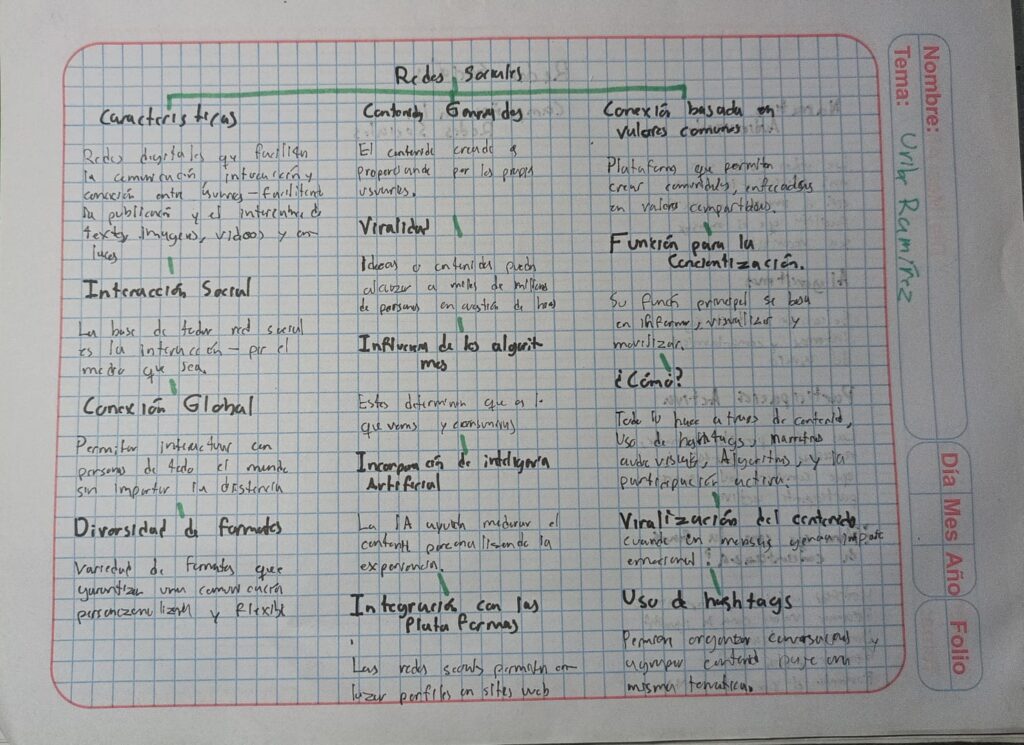 Redes Sociales
Caracteristicas
Redes digitales que
la comunicación interacción y
conexión entre
publicación y el
texto, imagenes, videos y en-
laces
Interacción Social
La base de toda red social
es la interacción - por el
medio que sea.
Conexión Global
Permiten interactuar con
personas de todo el mundo
sin importar la distancia
Diversidad de formatos
Variedad de formatos que
garantiza una comunicación
y flexible
Contenido Generados
El contenido creado
por los propios
usuarios.
Viralidad
Ideas o contenidos
alcanzar a miles de millones
de personas en cuestión de horas
Influencia de los algorit
mos
Estos determinan que es l
que vemos y consumimos
Incorporación de inteligencia
Artificial
La IA ayuda el
personalizando la
experiencia.
Integración con las
Plataformas
Las redes sociales permiten en-
lazar perfiles en sites web
Conexión basada en
valores comunes
Plataforma que permiten
crear comunidades, enfocadas
en valores compartidos.
Función para la
Concientización.
Su función principal se basa
en informar, visualizar y
movilizar.
¿Cómo?
Todo lo hace a traves de contenido,
Uso de hashtags, narrativas
audiovisuales, Algoritmos, y la
participación activa.
Viralización del contenido
cuando en mensaje genera impacto
emocional?
Uso de hashtags
Permiten organizar conversaciones y
agrupar contenido
misma tematica.
Nombre:
Tema:
Uribe Ramírez
Día Mes Año
Folio